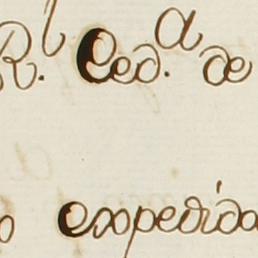 R.l Ced.a de
experida